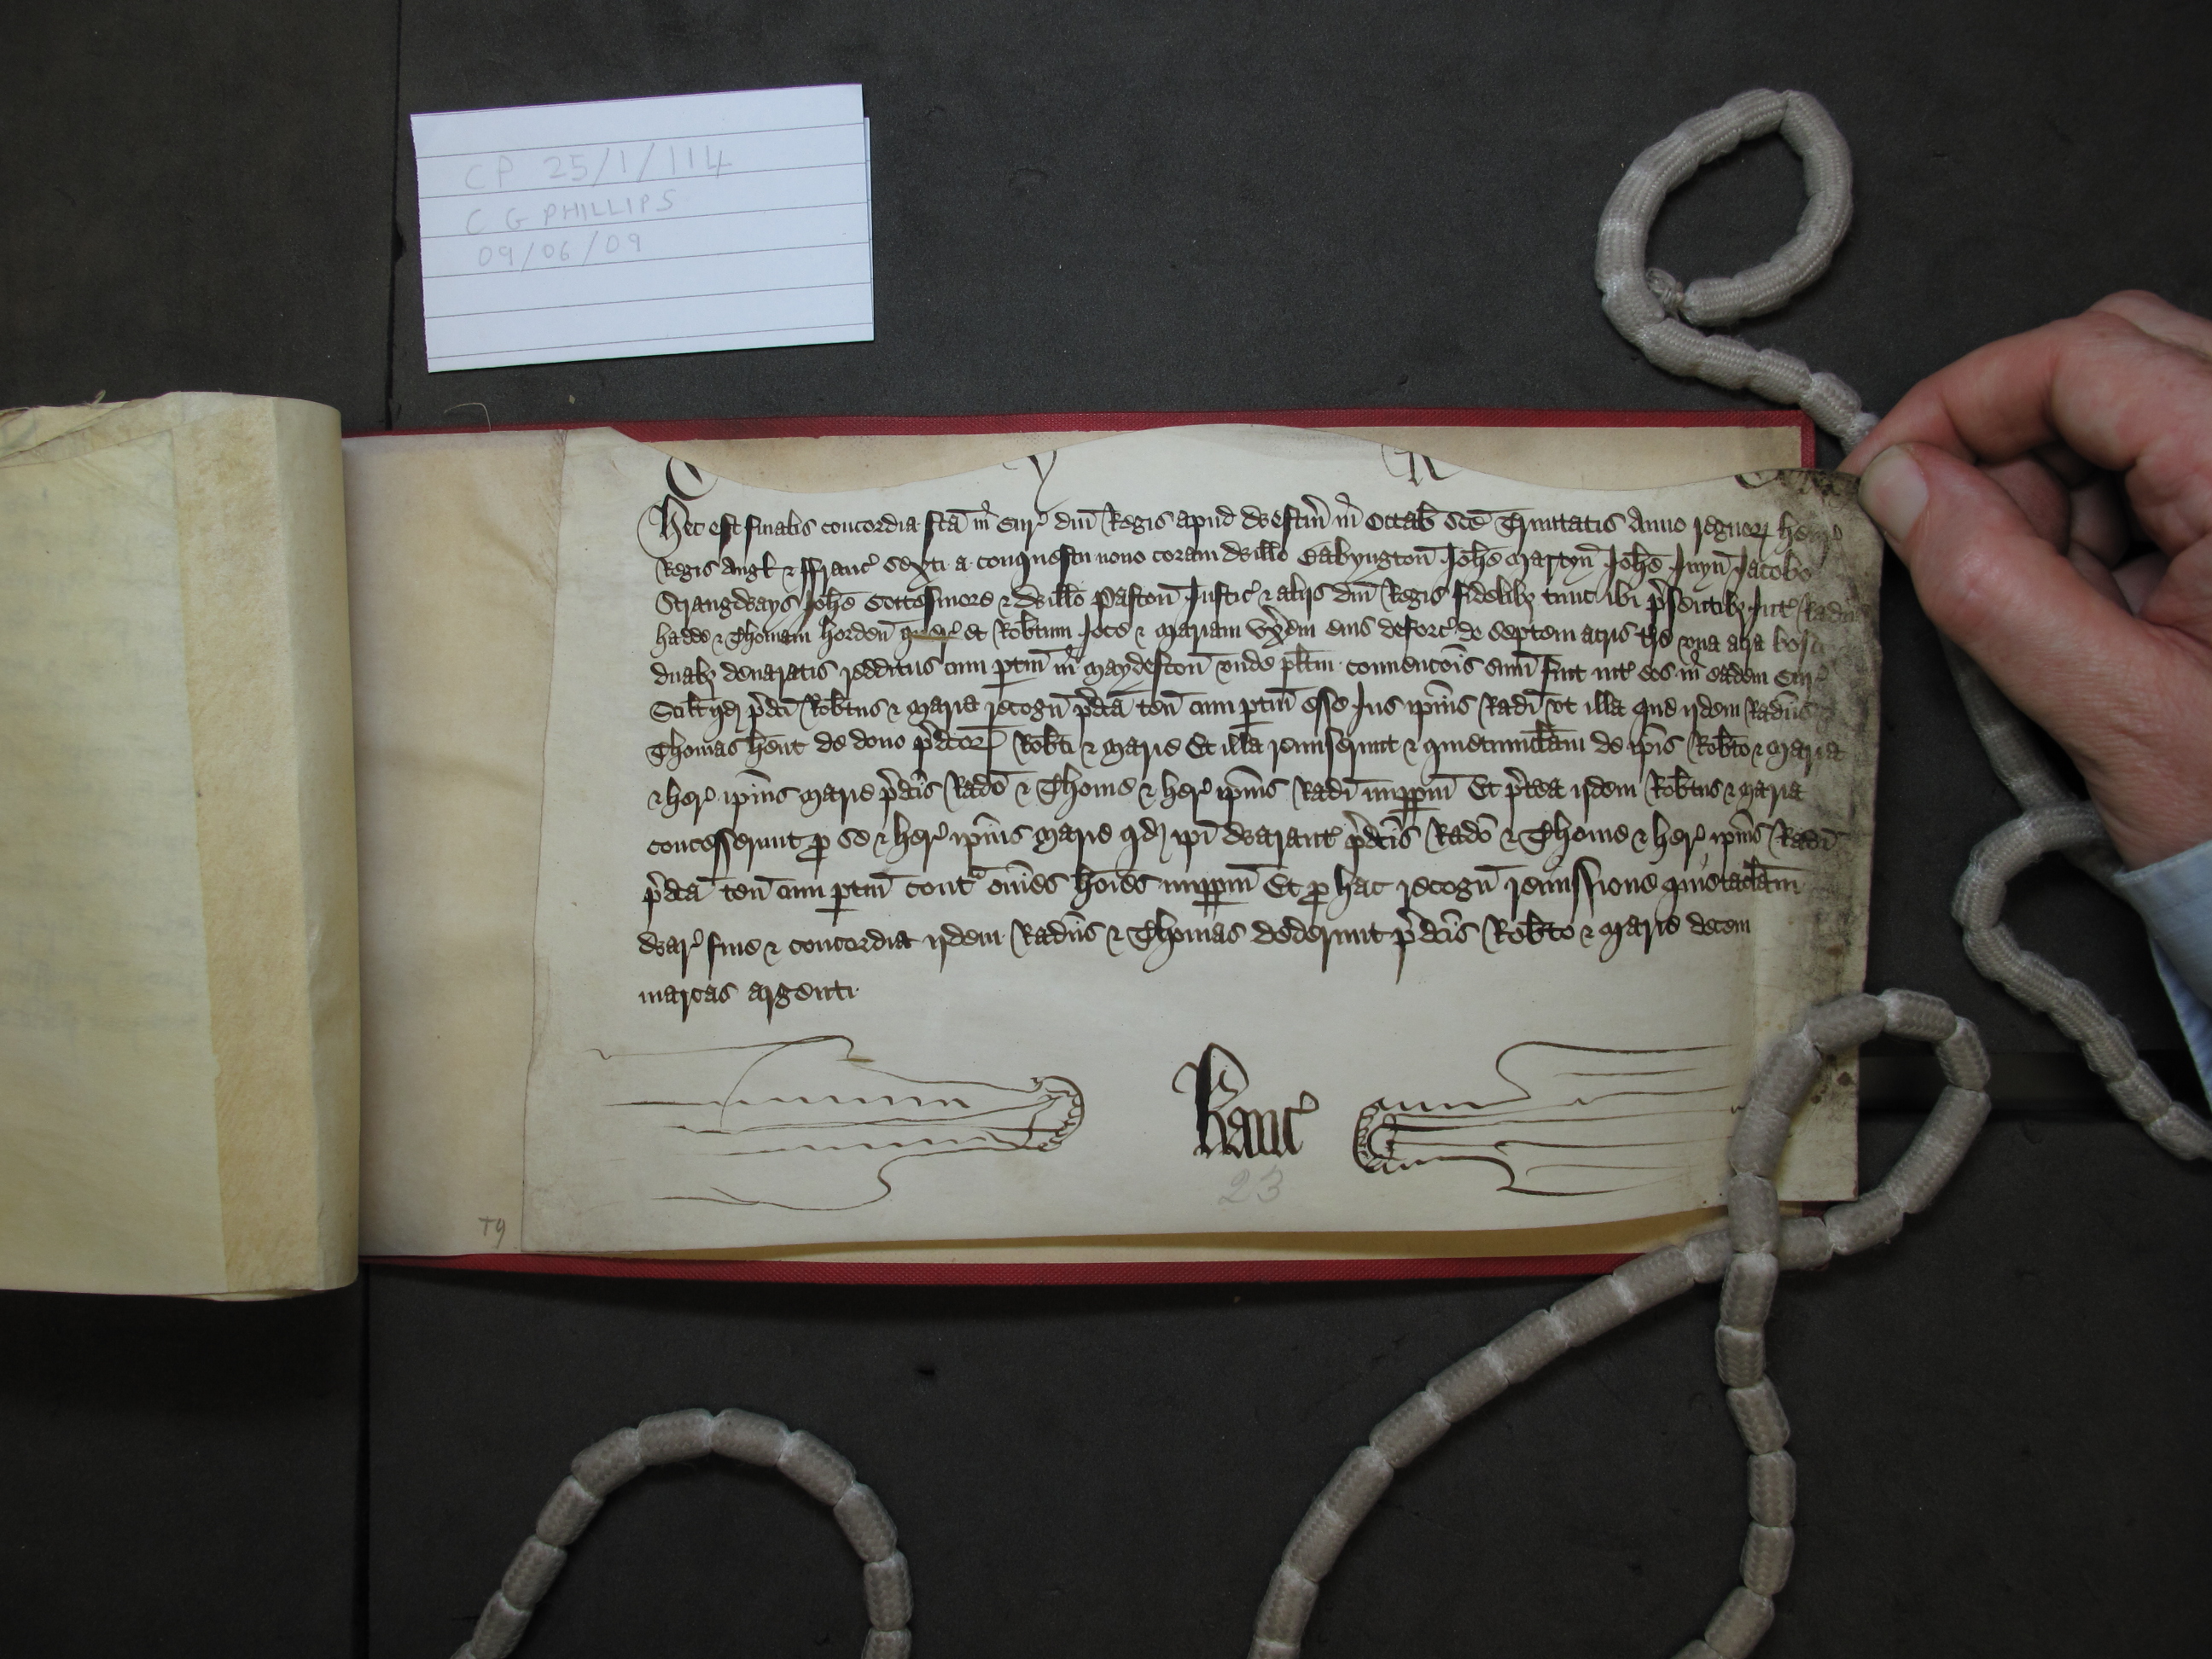 CP 25/1/114
C G PHILLIPS
09/06/09
Hec est finalis concordia fc̄a in Cur' dn̄i Regis apud Westm̄ in Octab̄ Sc̄e Trinitatis Anno regnorꝝ Henr'
Regis Angl̄ & ffranc' sexti a conquestu nono coram Will̄o Babyngton̄ Joh̄e Martyn̄ Joh̄e Juyn̄ Jacobo
Strangways Joh̄e Cottesmore & Will̄o Paston̄ Justic' & alijs dn̄i Regis fidelibꝫ tunc ibi p̄sentibꝫ Int' Radm̄
& Thomam Horden̄ quer' et Rob̄tum & Mariam vx̄em eius deforc' de septem acris t̄re vna acra bosci
duabꝫ denaratis redditus cum ptin̄ in Maydeston̄ vnde pl̄itm conuenc̄ois sum̄ fuit int' eos in eadem Cur'
Scil̄t qd̄ p̄dc̄i Rob̄tus & Maria recogn̄ p̄dc̄a ten̄ cum ptin̄ esse Jus ip̄ius Radī vt illa que ijdem Radūs
Thomas h̄ent de dono p̄dc̄orꝝ Rob̄ti & Marie Et illa remiserunt & quietumclam̄ de ip̄is Rob̄to & Maria
& her' ip̄ius Marie p̄dc̄is Rado̅ & Thome & her' ip̄ius Radī imppm̄ Et p̄terea ijdem Rob̄tus & Maria
concesserunt ꝓ se & her' ip̄ius Marie qd̄ ip̄i Warant' p̄dc̄is Rado̅ & Thome & her' ip̄ius Radī
p̄dc̄a ten̄ cum ptin̄ cont' om̄es ho̅ies imppm̄ Et ꝓ hac recogn̄ remissione quietaclam̄
War' fine & concordia ijdem Radūs & Thomas dederunt p̄dc̄is Rob̄to & Marie decem
marcas argenti
Kanc'
23
T9